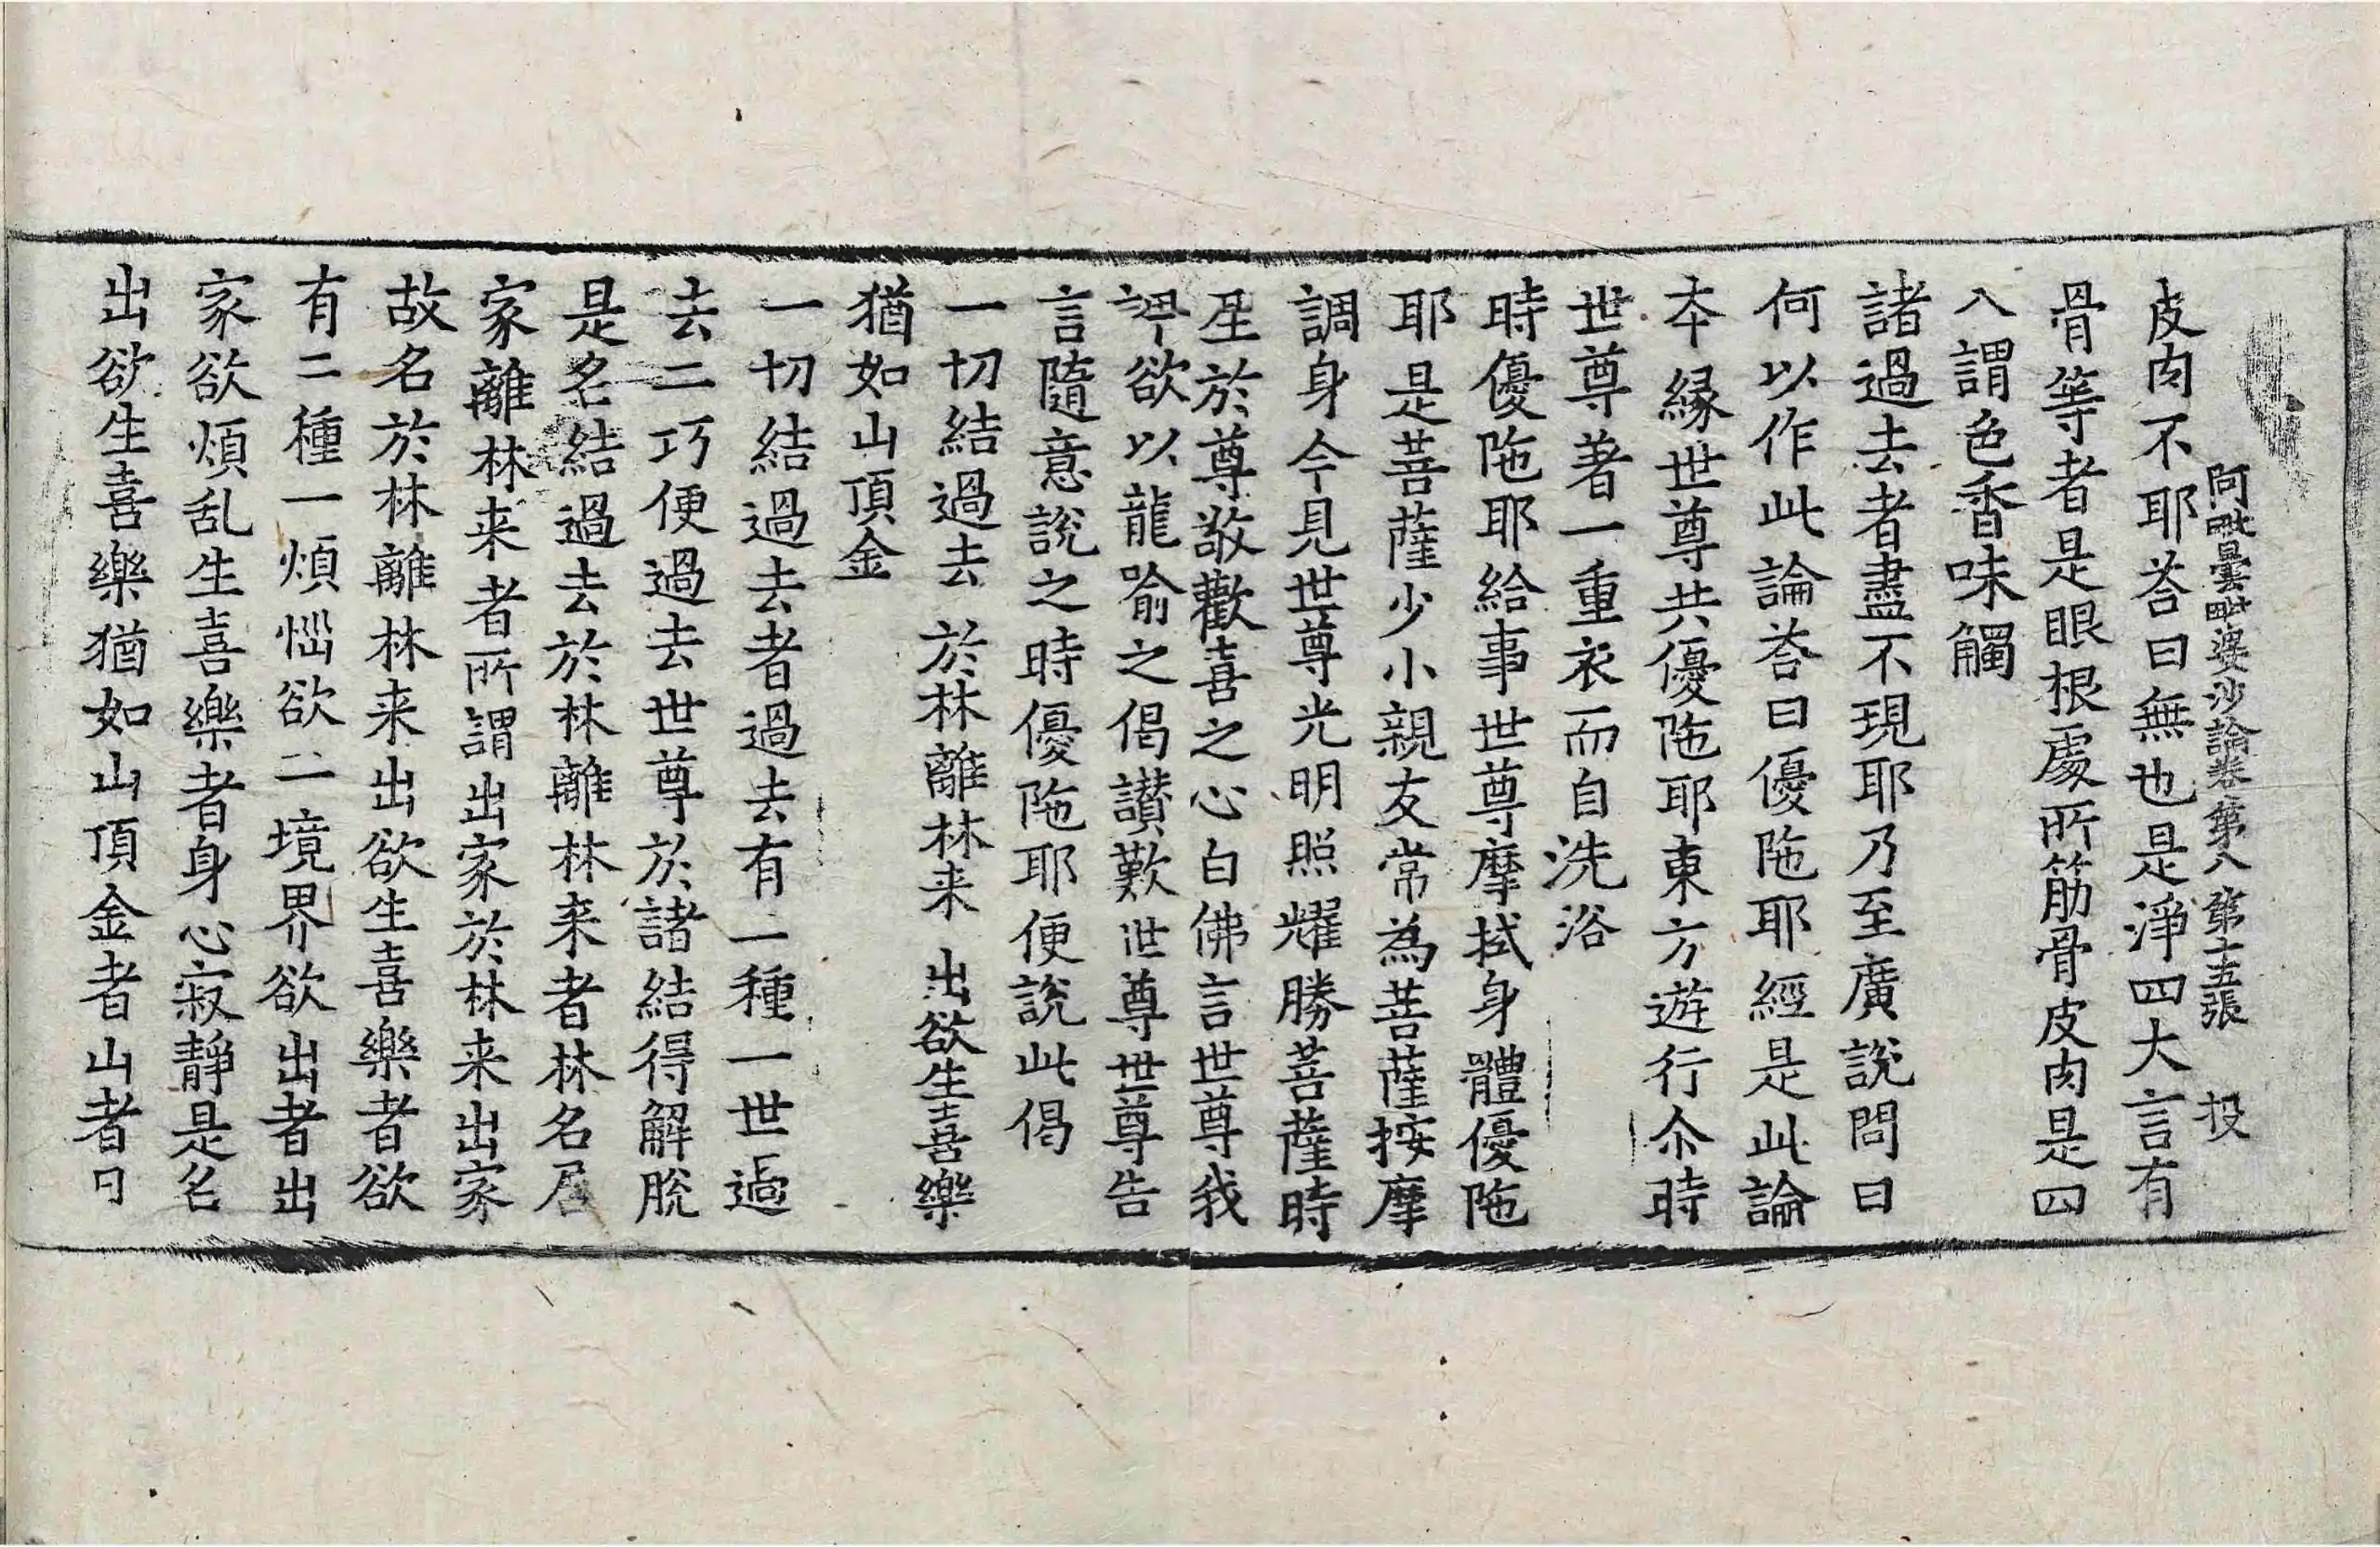 阿毗曇毗婆沙論卷第八 第十五張 投
皮肉不耶荅曰無也是淨四大言有
骨等者是眼根處所筋骨皮肉是四
入謂色香味觸
諸過去者盡不現耶乃至廣說問曰
何以作此論荅曰優陁耶經是此論
本緣世尊共優陁耶東方遊行尒時
世尊著一重衣而自洗浴
時優陁耶給事世尊摩拭身體優陁
耶是菩薩少小親友常為菩薩按摩
調身今見世尊光明照耀勝菩薩時
生於尊敬歡喜之心白佛言世尊我
欲以龍喻之偈讃歎世尊世尊告
言隨意說之時優陁耶便說此偈
一切結過去 於林離林来 出欲生喜樂
猶如山頂金
一切結過去者過去有二種一世過
去二巧便過去世尊於諸結得解脫
是名結過去於林離林来者林名居
家離林来者所謂出家於林来出家
故名於林離林来出欲生喜樂者欲
有二種一煩惱欲二境界欲出者出
家欲煩乱生喜樂者身心寂靜是名
出欲生喜樂猶如山頂金者山者曰